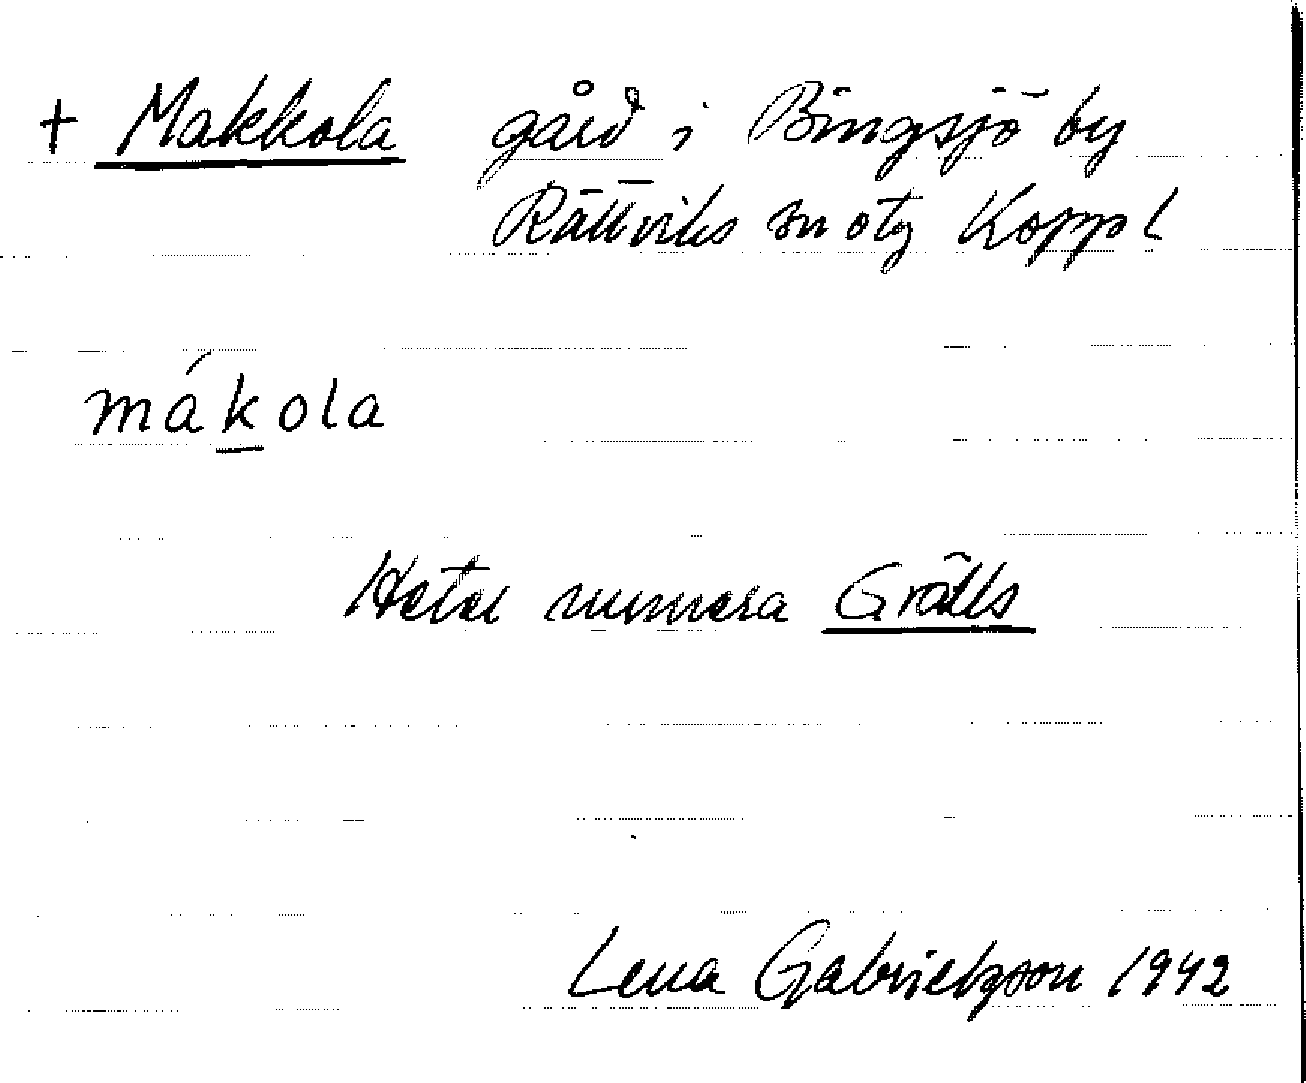 + Makkola gård i Bingsjö by
Rättviks sn o tg Koppl
mákola
Heter numera Grätls
Lena Gabrielsson 1942